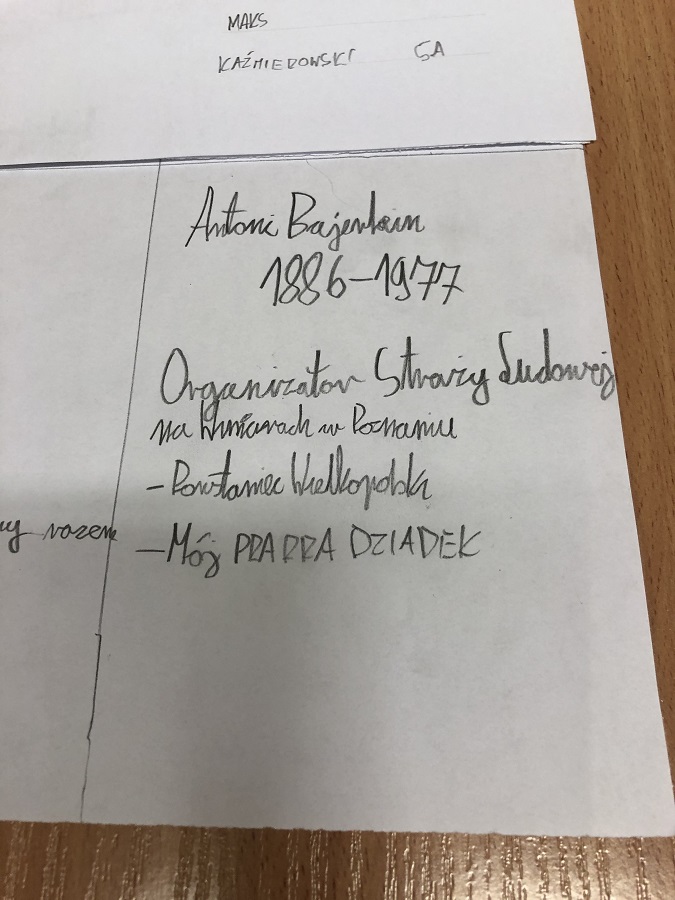 MAKS
KAŹMIEROWSKI 5A
Antoni Bajerlein
1886-1977
Organizator Straży Ludowej
na Winiarach w Poznaniu
- Powstaniec Wielkopolski
uy razem
- Mój PRAPRA DZIADEK